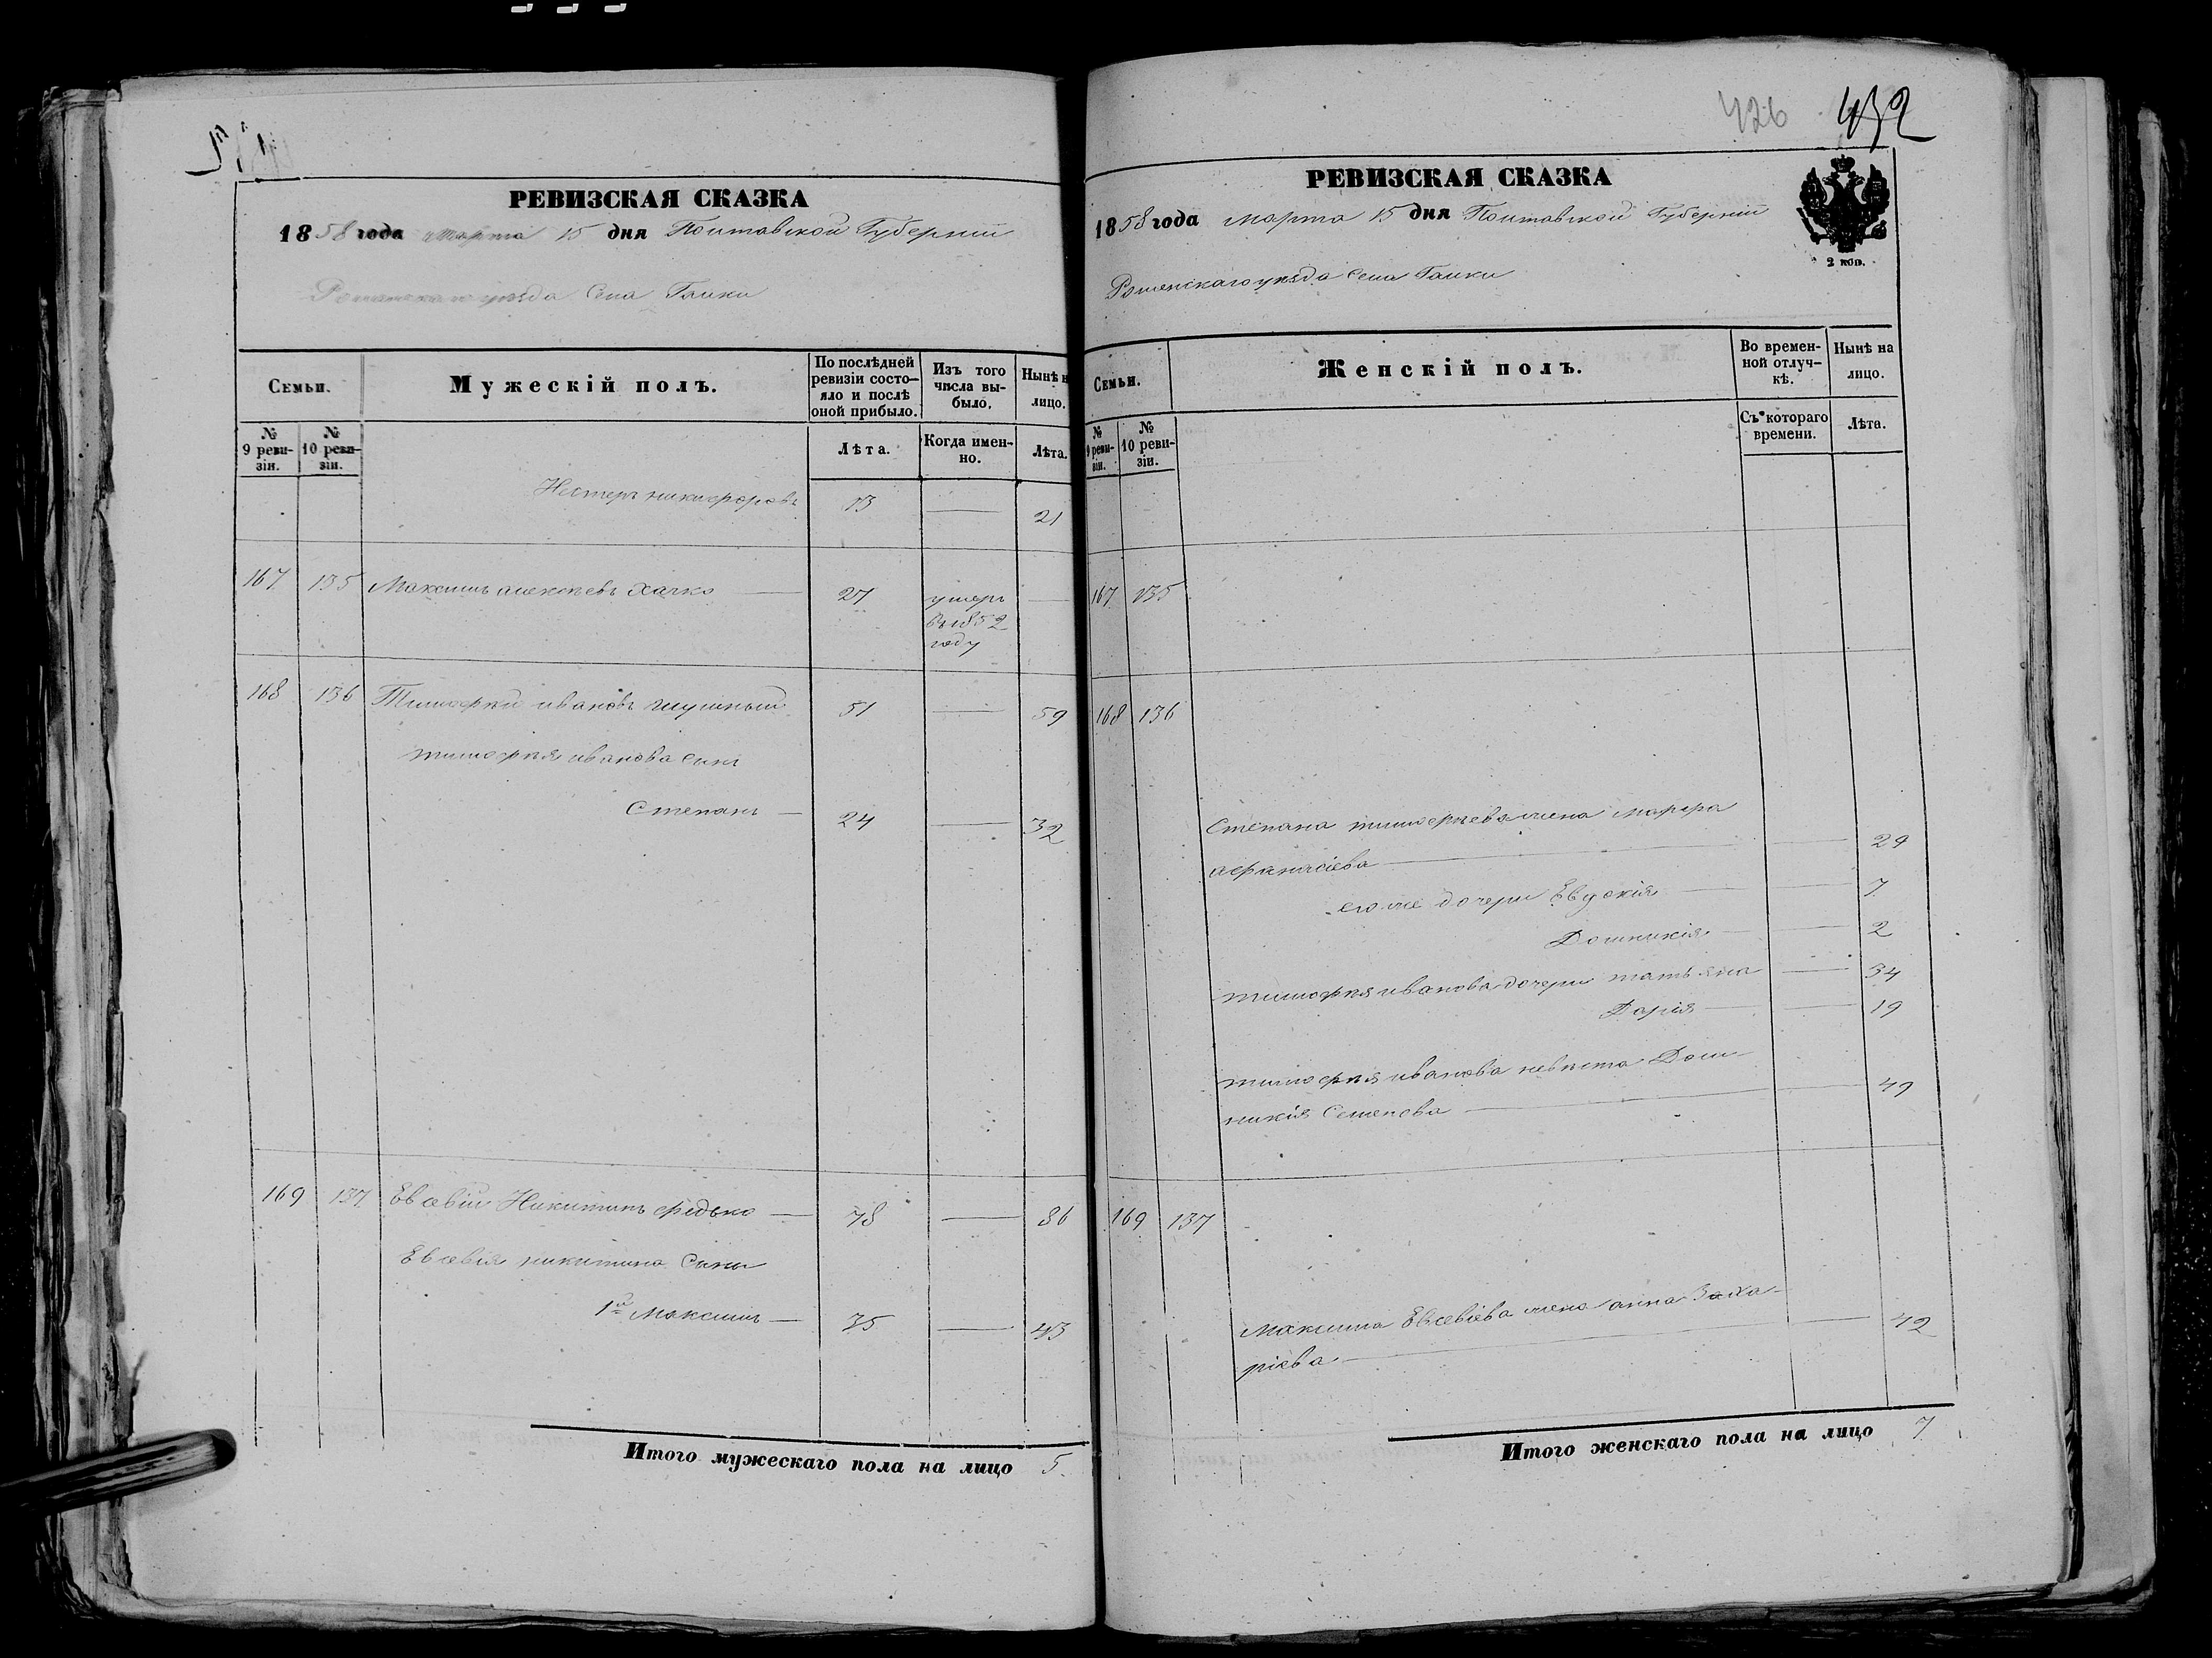 РЕВИЗСКАЯ СКАЗКА
1858 года марта 15 дня Полтавской Губерніи
Роменскаго уѣзда Села Галки
Семьи.
Мужескій полъ.
По послѣдней ревизіи состояло и послѣ оной прибыло.
Изъ того числа выбыло.
Нынѣ на лицо.
№ 9 ревизіи.
№ 10 ревизіи.
Лѣта.
Когда именно.
Лѣта.
Нестеръ никифоровъ 13 — 21
167 135 Максимъ алексѣевъ Хачко — 27 умеръ —
въ 1852
году
168 136 Тимофѣй ивановъ 51 — 59
тимофѣя иванова сынъ
Степанъ — 24 — 32
169 137 Евсевій Никитинъ федько — 78 — 86
Евсевія никитина Сыны
1й Максимъ — 35 — 43
Итого мужескаго пола на лицо 5.
426 432
РЕВИЗСКАЯ СКАЗКА
1858 года марта 15 дня Полтавской Губерніи
2 коп.
Роменскаго уѣзда Села Галки
Семьи.
Женскій полъ.
Во временной отлучкѣ.
Нынѣ на лицо.
№ 9 ревизіи.
№ 10 ревизіи.
Съ котораго времени.
Лѣта.
167 135
168 136
Степана тимофѣева жена марфа
афанасіева — — 29
его же дочери Евдокія — — 7
Домникія — — 2
тимофѣя иванова дочери татьяна — 34
Дарія — — 19
тимофѣя иванова невѣста Дом-
никія Семенова — — 49
169 137
Максима Евсевіева жена анна Заха-
ріева — — 42
Итого женскаго пола на лицо 7